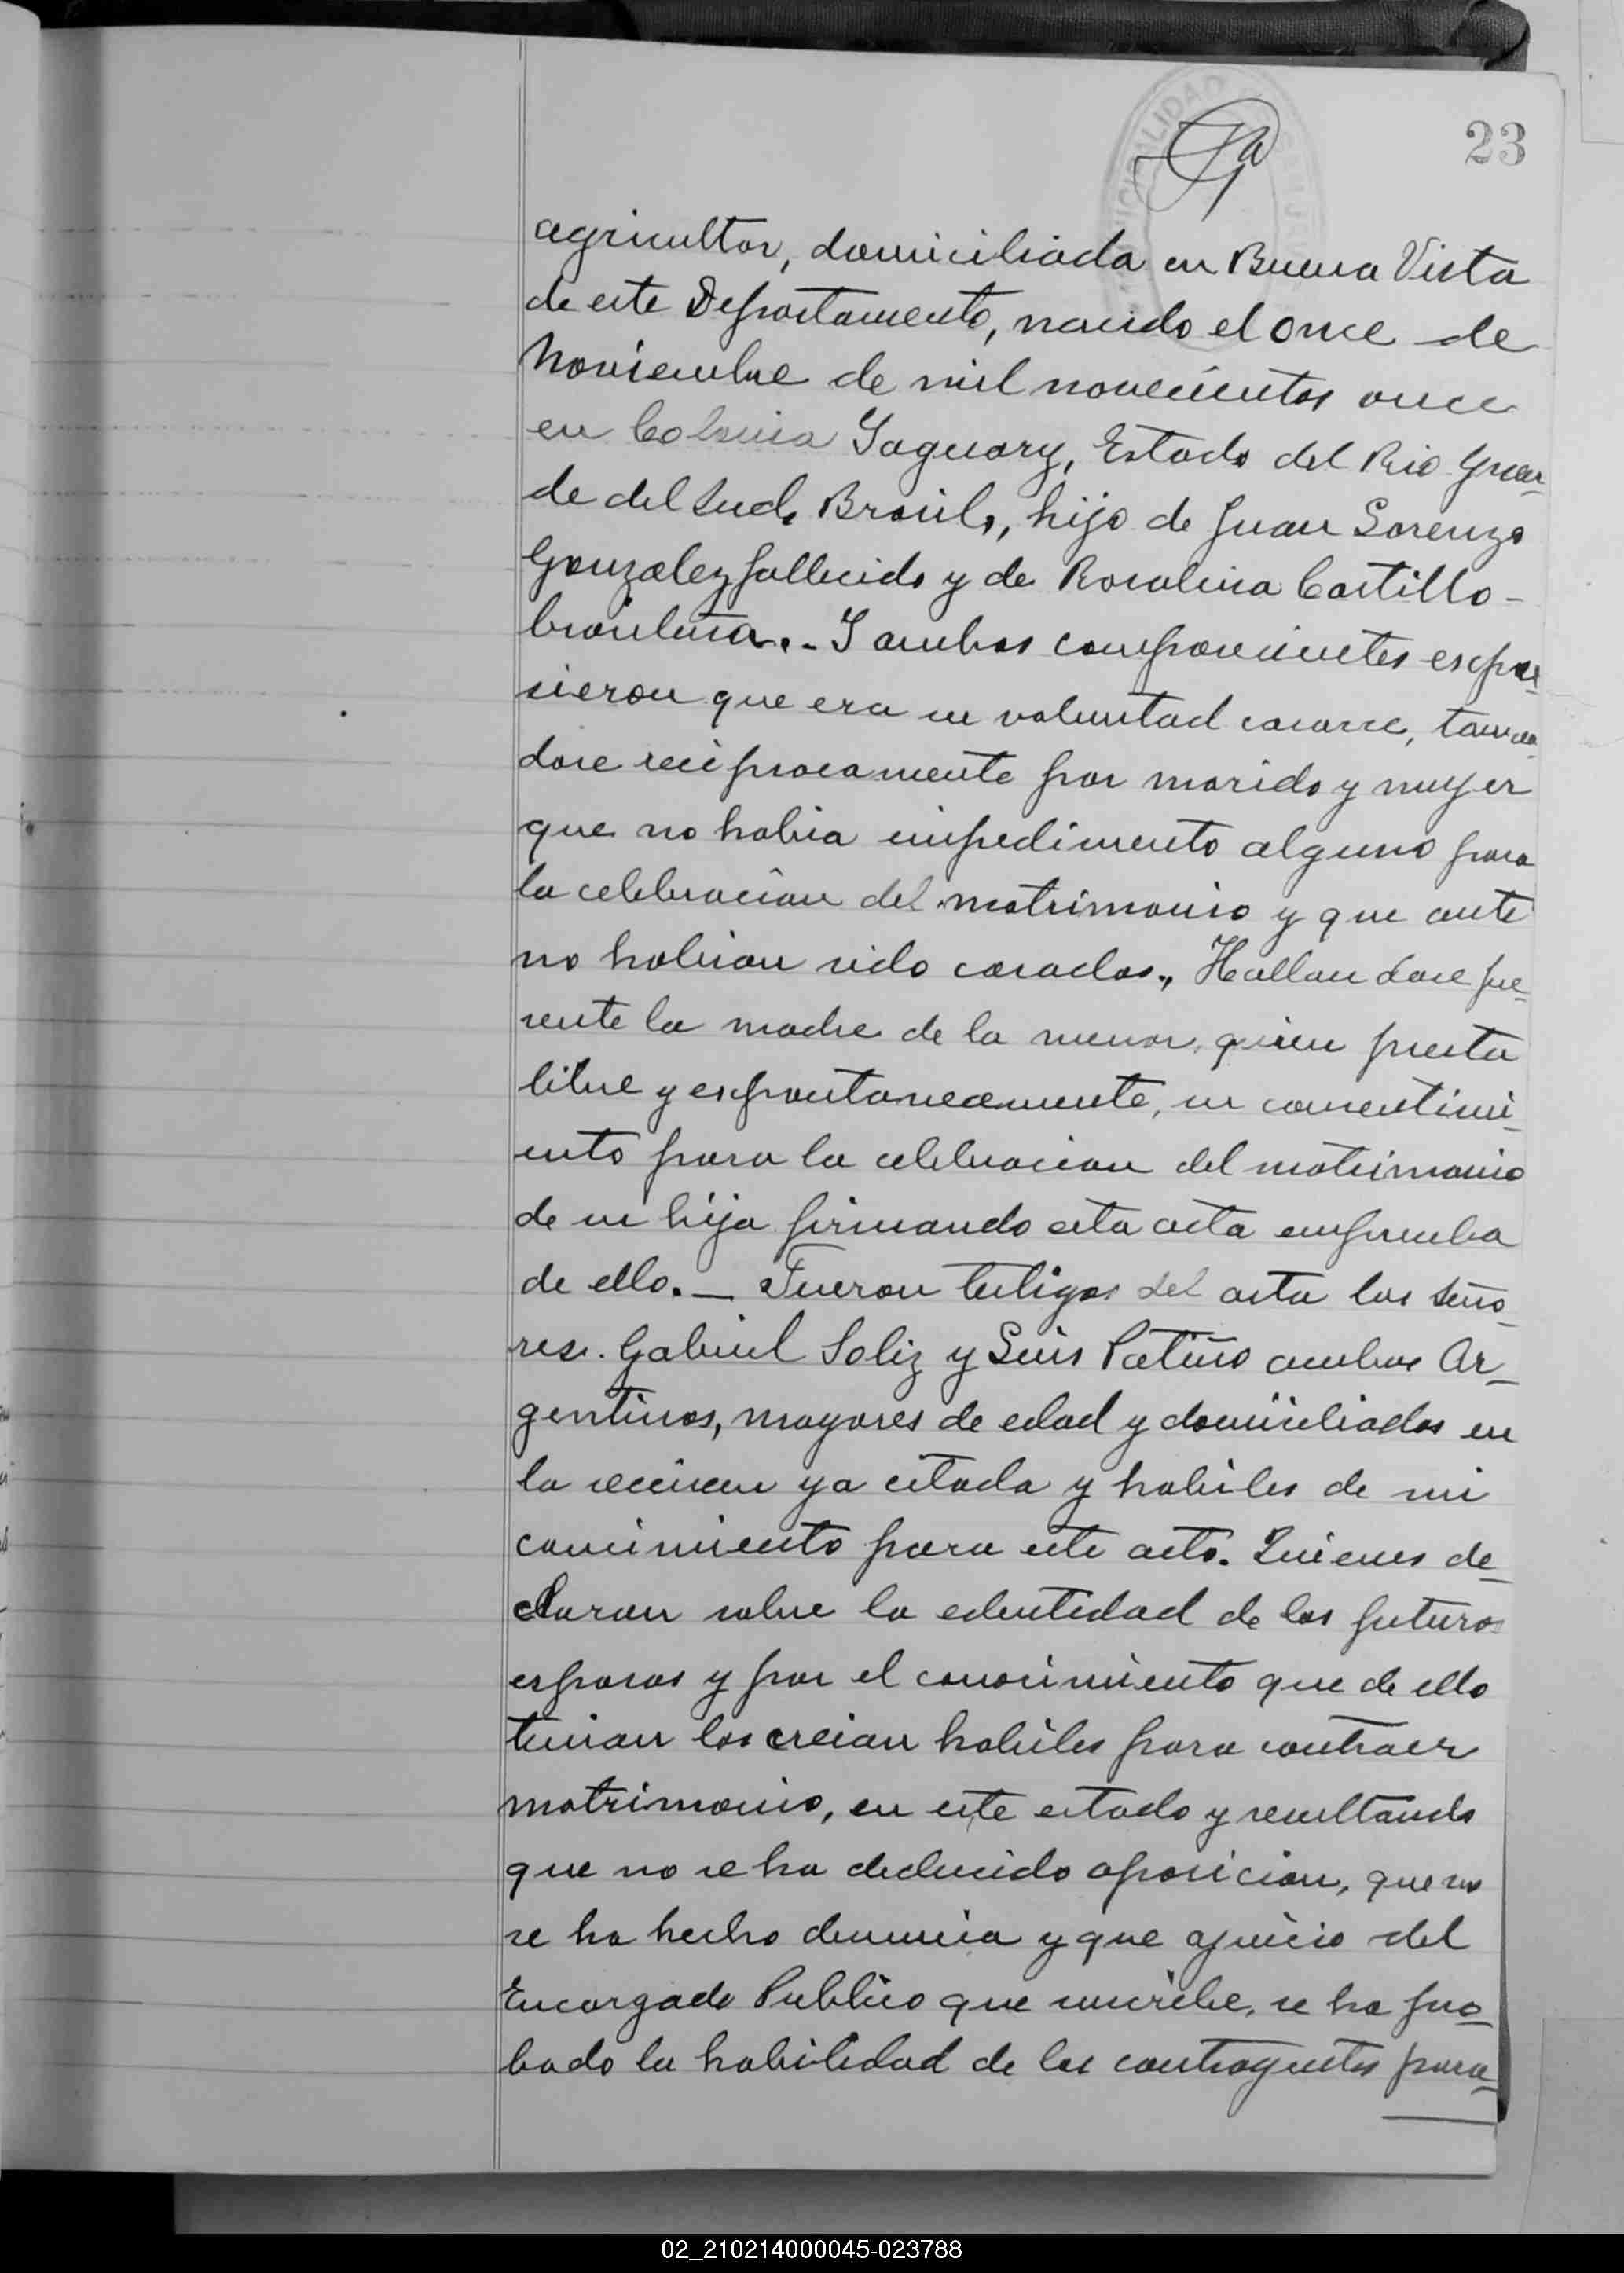 23
agricultor, domiciliada en Buena Vista
de este Departamento, nacido el once de
Noviembre de mil novecientos once
en Colonia Yaguary, Estado del Rio Gran-
de del Sud, Brasil, hijo de Juan Lorenzo
Gonzalez fallecido y de Rosalina Castillo-
brasileña.- Y ambos comparecientes expu-
sieron que era su voluntad casarse, toman
dose reciprocamente por marido y mujer
que no habia impedimento alguno para
la celebracion del matrimonio y que ante
no habian sido casados., Hallandose pre-
sente la madre de la menor, quien presta
libre y expontaneamente, su consentimi-
ento para la celebracion del matrimonio
de su hija firmando esta acta en prueba
de ello.— Fueron testigos del acta los Seño-
res. Gabriel Soliz y Luis Patiño ambos Ar-
gentinos, mayores de edad y domiciliados en
la seccion ya citada y habiles de mi
conocimiento para este acto. Quienes de-
claran sobre la edentidad de los futuros
esposos y por el conocimiento que de ello
tenian los creian habiles para contraer
matrimonio, en este estado y resultando
que no se ha deducido oposicion, que no
se ha hecho denuncia y que ajuicio del
Encargado Publico que suscribe, se ha pro-
bado la habilidad de los contrayentes para-
02_210214000045-023788